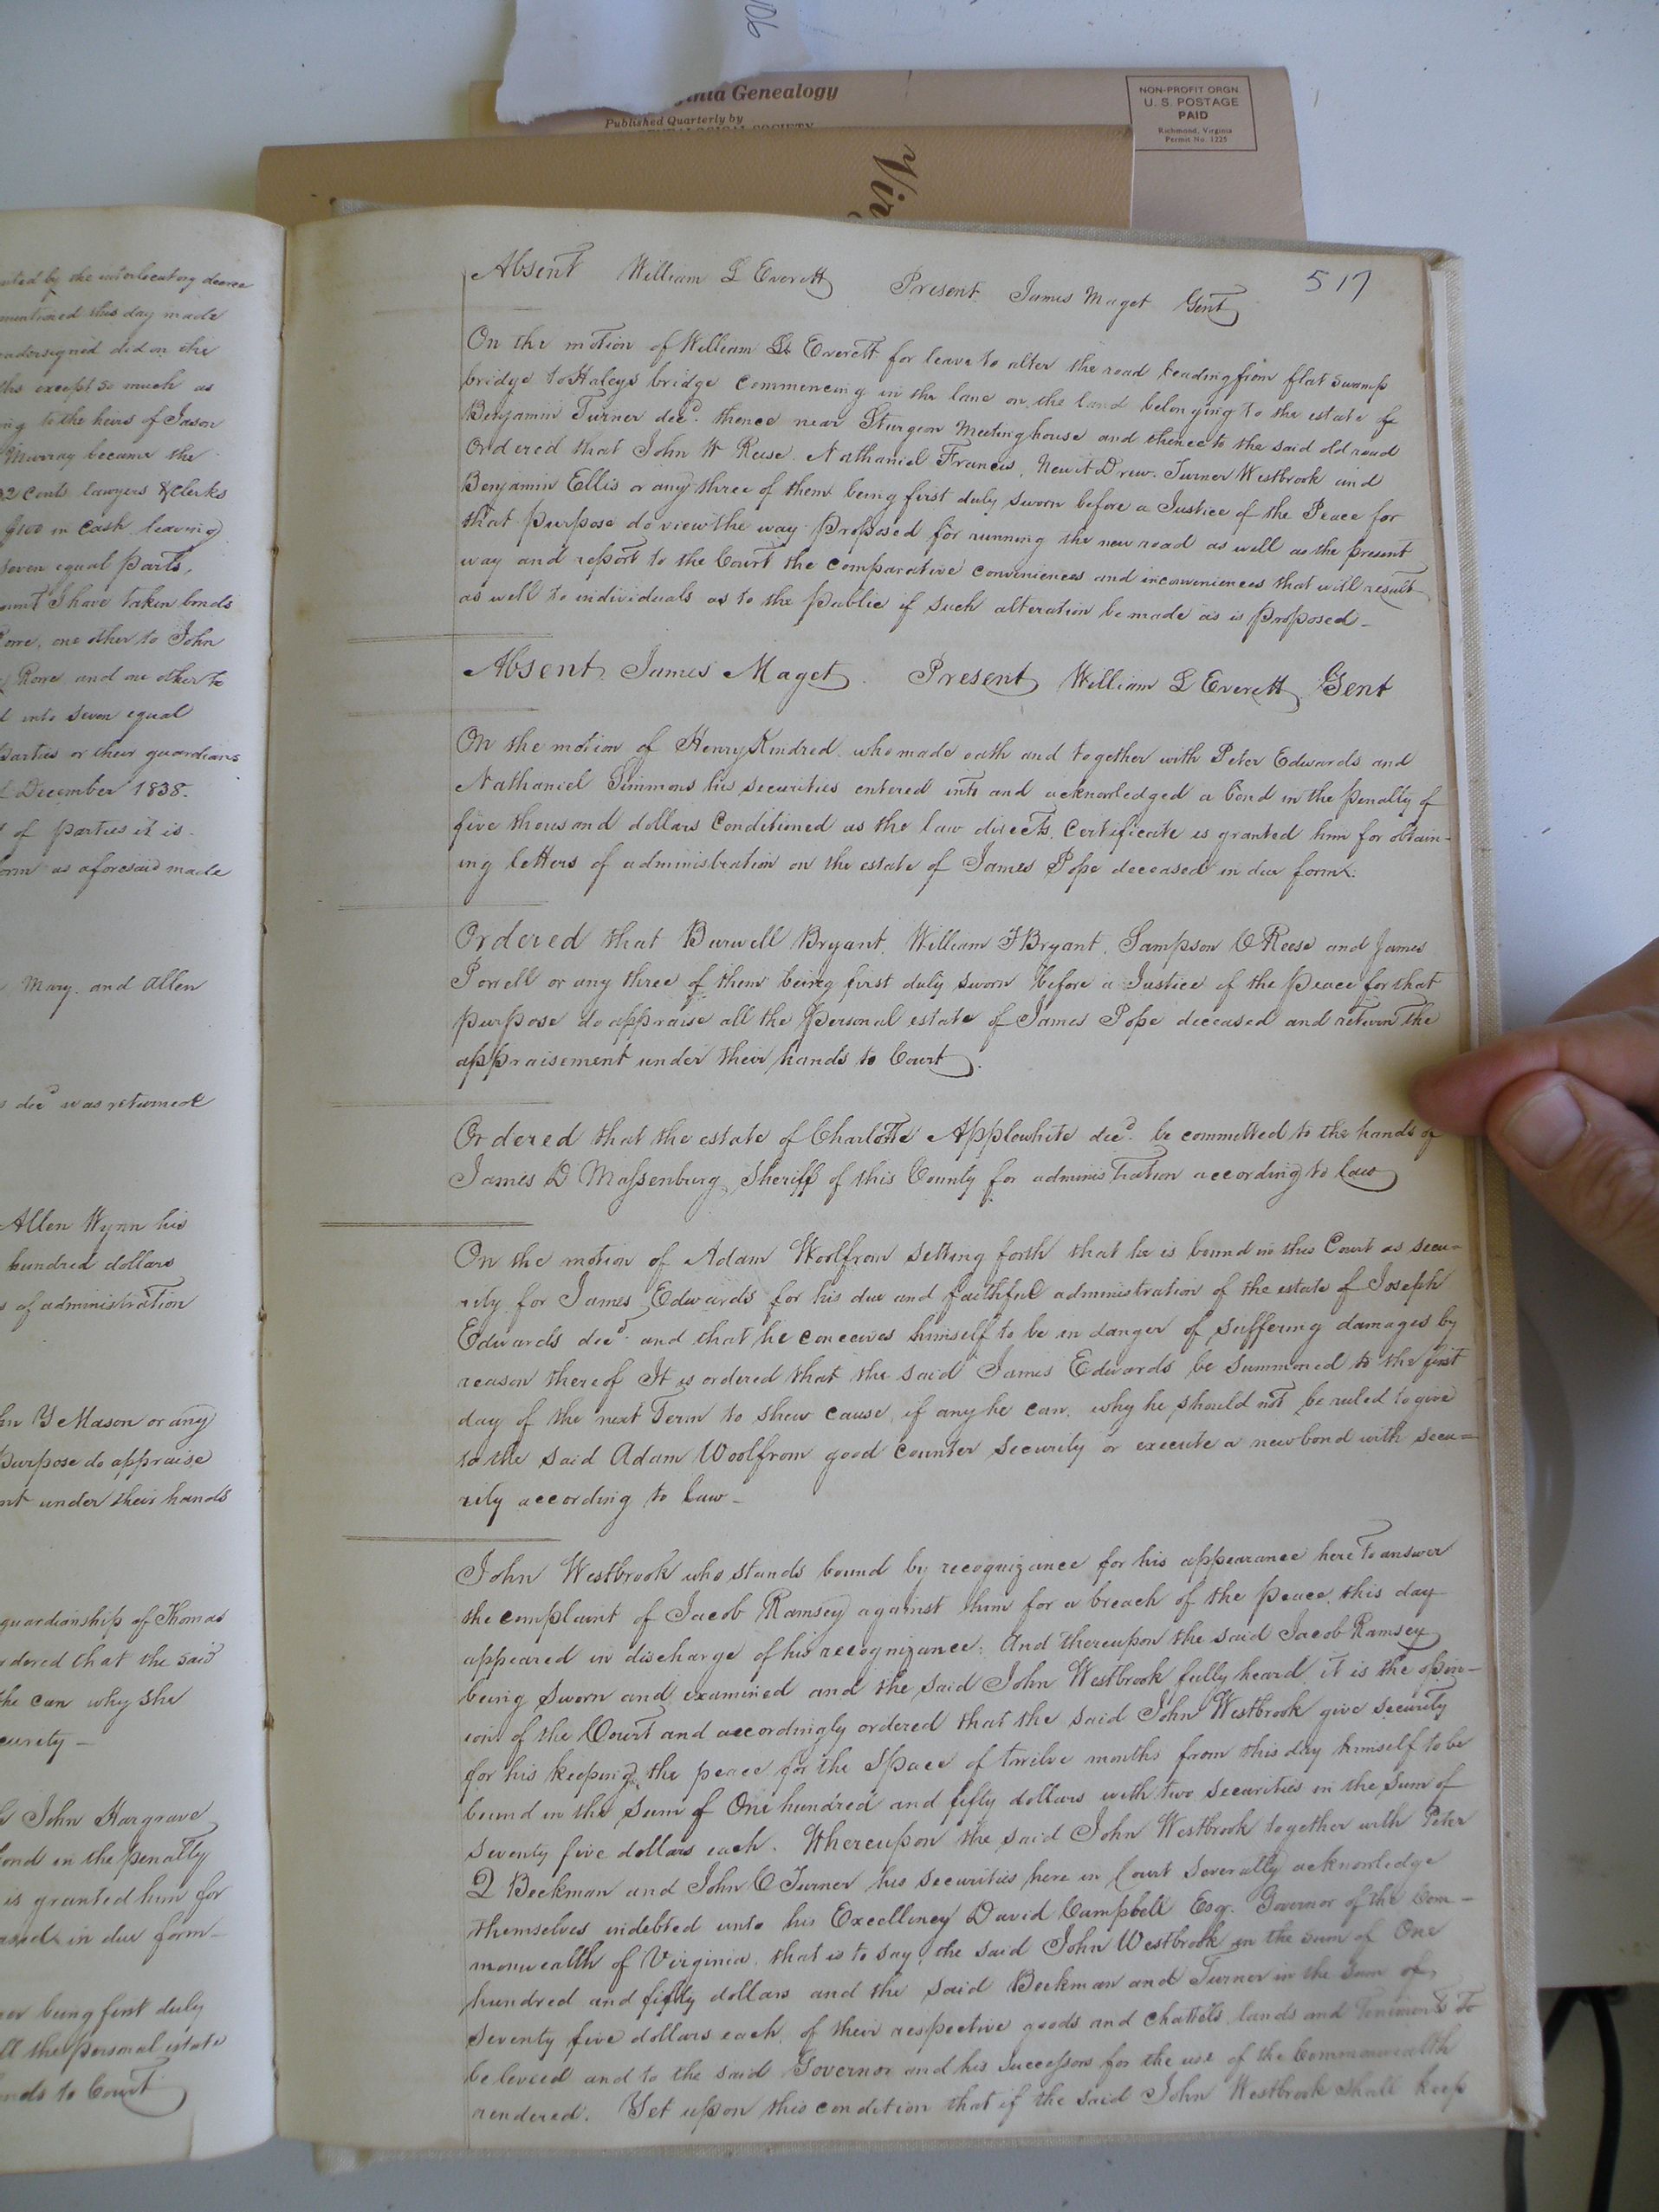 nia Genealogy
Published Quarterly by
NON-PROFIT ORGN
U. S. POSTAGE
PAID
Richmond, Virginia
Permit No. 1225
Vir
by the interlocutory decree
mentioned this day made
undersigned did on the
except so much as
to the heirs of Jason
Murray became the
cents lawyers & clerks
$100 in cash leaving
seven equal parts,
I have taken bonds
one other to John
Rowe and one other to
into seven equal
parties or their guardians
December 1838.
of parties it is
form as aforesaid made
Mary. and Allen
decd was returned
Allen Wynn his
hundred dollars
of administration
hn Y Mason or any
purpose do appraise
under their hands
guardianship of Thomas
ordered that the said
she can why she
security –
John Hargrave
bond in the penalty
is granted him for
in due form –
being first duly
the personal estate
hands to Court
517
Absent William L Everett Present James Maget Gent
On the motion of William L Everett for leave to alter the road leading from flat Swamp
bridge to Haleys bridge commencing in the lane on the land belonging to the estate of
Benjamin Turner decd. thence near Sturgeon Meeting house and thence to the said old road
Ordered that John W Reese. Nathaniel Francis, Newit Drew. Turner Westbrook and
Benjamin Ellis or any three of them being first duly sworn before a Justice of the Peace for
that purpose do view the way proposed for running the new road as well as the present
way and report to the Court the comparative conveniences and inconveniences that will result
as well to individuals as to the public if such alteration be made as is proposed –
Absent James Maget. Present William L Everett Gent
On the motion of Henry Kindred who made oath and together with Peter Edwards and
Nathaniel Simmons his securities entered into and acknowledged a bond in the penalty of
five thousand dollars Conditioned as the law directs. Certificate is granted him for obtain-
ing letters of administration on the estate of James Pope deceased in due form.
Ordered that Burwell Bryant. William F Bryant, Sampson C Reese and James
Porrell or any three of them being first duly sworn before a Justice of the peace for that
purpose do appraise all the personal estate of James Pope deceased and return the
appraisement under their hands to Court.
Ordered that the estate of Charlotte Applewhite decd. be committed to the hands of
James D Massenburg, Sheriff of this County for administration according to law
On the motion of Adam Woolfrom setting forth that he is bound in this Court as secu=
rity for James Edwards for his due and faithful administration of the estate of Joseph
Edwards decd. and that he conceives himself to be in danger of suffering damages by
reason thereof It is ordered that the said James Edwards be summoned to the first
day of the next Term to shew cause, if any he can. why he should not be ruled to give
to the said Adam Woolfrom good counter security or execute a new bond with secu=
rity according to law –
John Westbrook who stands bound by recognizance for his appearance here to answer
the complaint of Jacob Ramsey against him for a breach of the peace, this day
appeared in discharge of his recognizance: And thereupon the said Jacob Ramsey
being sworn and examined and the said John Westbrook fully heard it is the opin-
ion of the Court and accordingly ordered that the said John Westbrook give security
for his keeping the peace for the space of twelve months from this day himself to be
bound in the sum of One hundred and fifty dollars with two securities in the sum of
seventy five dollars each. Whereupon the said John Westbrook together with Peter
Q Beekman and John C Turner his securities here in Court severally acknowledge
themselves indebted unto his Excellency David Campbell Esqr. Governor of the Com-
monwealth of Virginia. that is to say, the said John Westbrook in the sum of One
hundred and fifty dollars and the said Beekman and Turner in the sum of
seventy five dollars each, of their respective goods and chattels lands and tenements to
be levied and to the said Governor and his successors for the use of the Commonwealth
rendered. Yet upon this condition that if the said John Westbrook shall keep